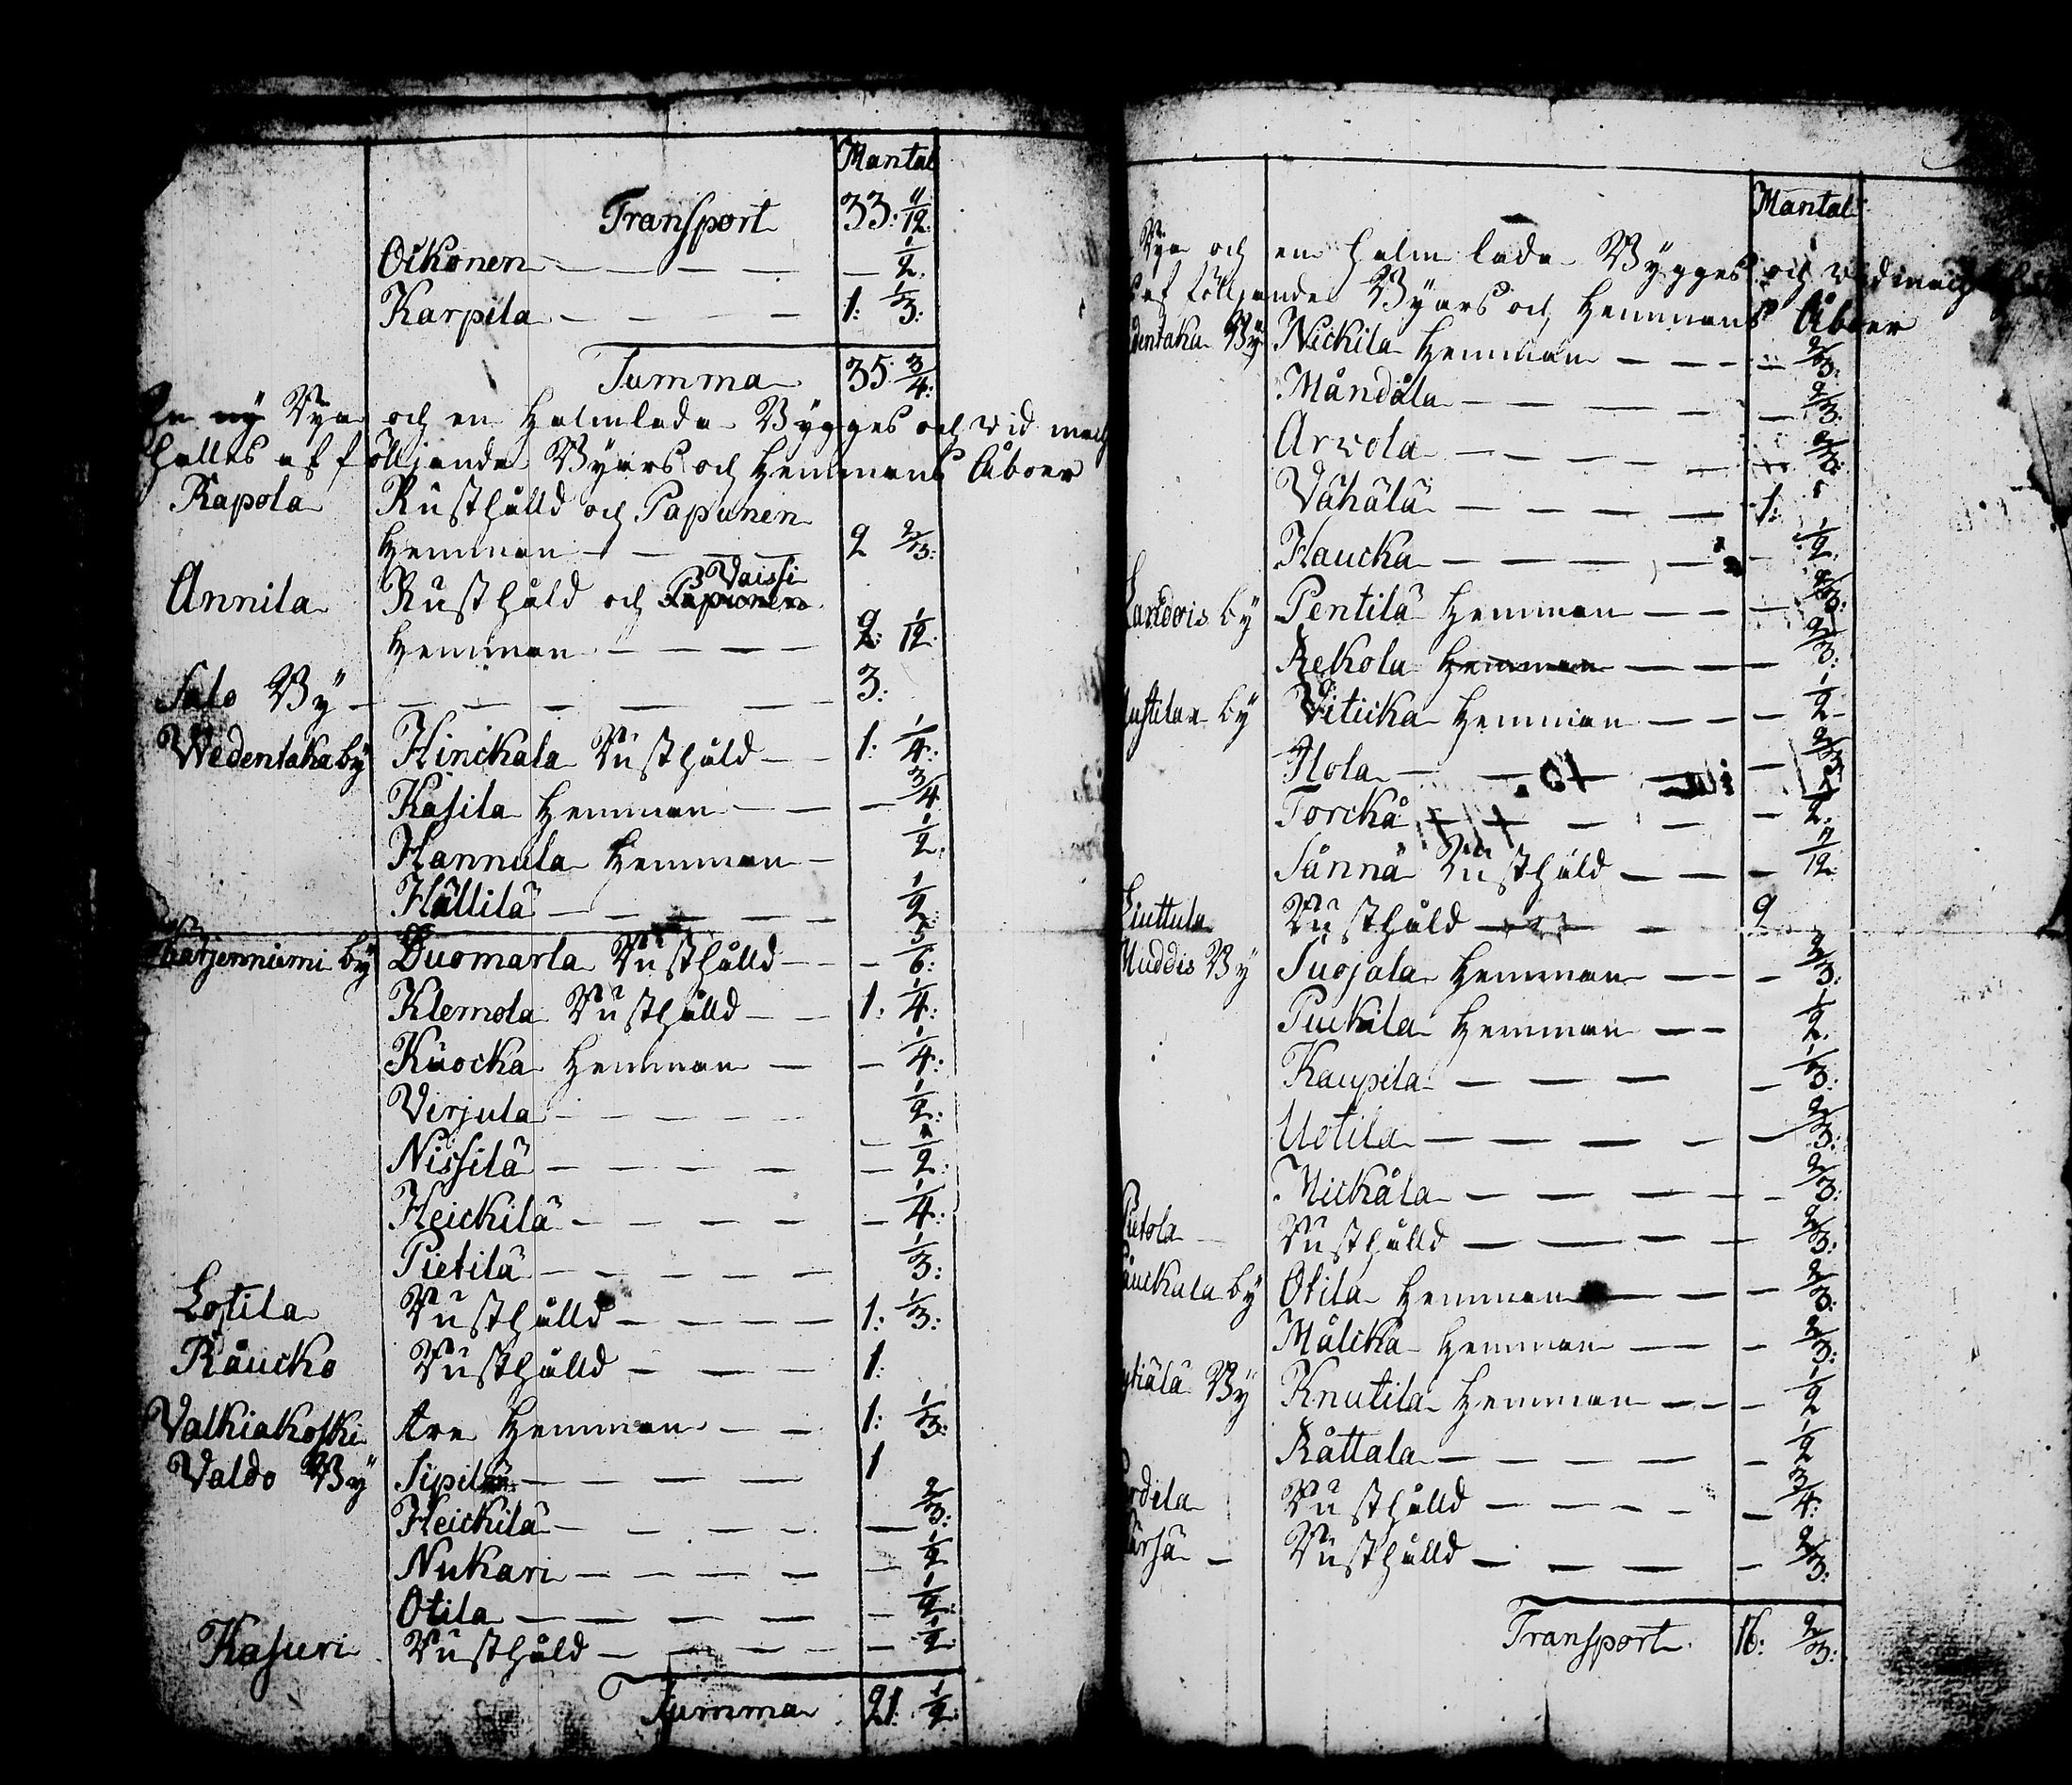 Mantal
Transport 33: 11/12:
Oikonen — — — — 1/2.
Karpila — — — — 1: 1/3:
Summa 35 3/4:
En ny Rya och en Halmlada Bygges och vid mach
halles af följjande Byars och Hemmans Åboer
Rapola Rusthålld och Papunen
Hemman — — — 2 2/3:
Annila Rusthåld och Papunen Vaissi
Hemman — — — — 2: 1/12:
Salo By — — — — — — 3:
Wedentaka by Hinckala Rusthåld — — 1: 1/4:
Kasila Hemman — — — 3/4
Hannula Hemman — 1/2.
Hällilä — — — — — 1/2:
Karjenniemi by Duomarla Rusthålld — — — 5/6:
Klemola Rusthålld — — 1: 1/4:
Kuocka Hemman — — 1/4:
Virjula — — — — — 1/2:
Nissilä — — — — — 1/2:
Heickilä — — — — — 1/4:
Pietilä — — — — — 1/3:
Lotila Rusthålld — — — — 1: 1/3:
Räucko Rusthålld — — — 1:
Valkiakoski tre Hemman — — 1: 1/3:
Valdo By Sipilä — — — — 1
Heickilä — — — — — 2/3:
Nukari — — — — — 1/2
Otila — — — — — 1/2:
Kasuri Rusthåld — — — — — 1/2:
Summa 21: 1/2:
Mantal
Rya och en halmlada Bygges och vidmach
af följjande Byars och Hemmans Åboer
dentaka By Nickila Hemman — — — — 2/3:
Måndåla — — — — — 2/3:
Arvola — — — — — 2/3:
Vähälä — — — — 1:
Haucka — — — — — 1/2.
Landois by Pentilä Hemman — — — 2/3:
Rekola Hemman — — — 2/3:
ustilan by Viticka Hemman — — — 1/2
Ilola — — — — — 2/3:
Torckå — — — — — 1/2.
Sännä Rusthåld — — — 7/12
Liuttula Rusthåld — — — 2
Muddis By Suojala Hemman — — — 2/3:
Puckila Hemman — — 1/2.
Kaupila — — — — 1/3:
Uotila — — — — — 2/3:
Mickåla — — — — — 2/3:
Rusthålld — — — — 2/3:
auckala by Otila Hemman — — — 2/3:
Målcka Hemman — — — 2/3:
tiälä By Knutila Hemman — — — 1/2
Råttala — — — — — 1/2
rdila Rusthålld — — — — — 3/4:
Rusthålld — — — — — 2/3:
Transport 16: 2/3: